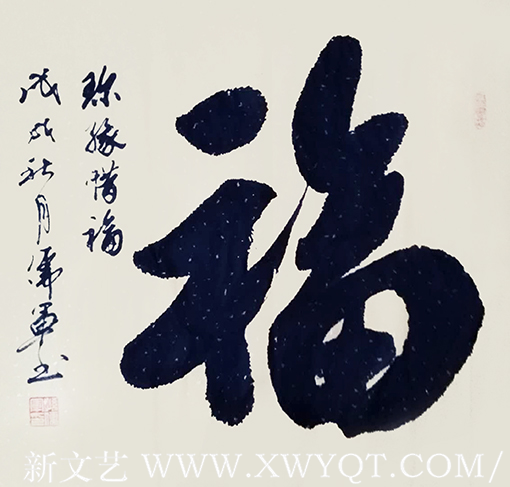 福
珍缘惜福
戊戌秋月儒军书
新文艺 WWW.XWYQT.COM/